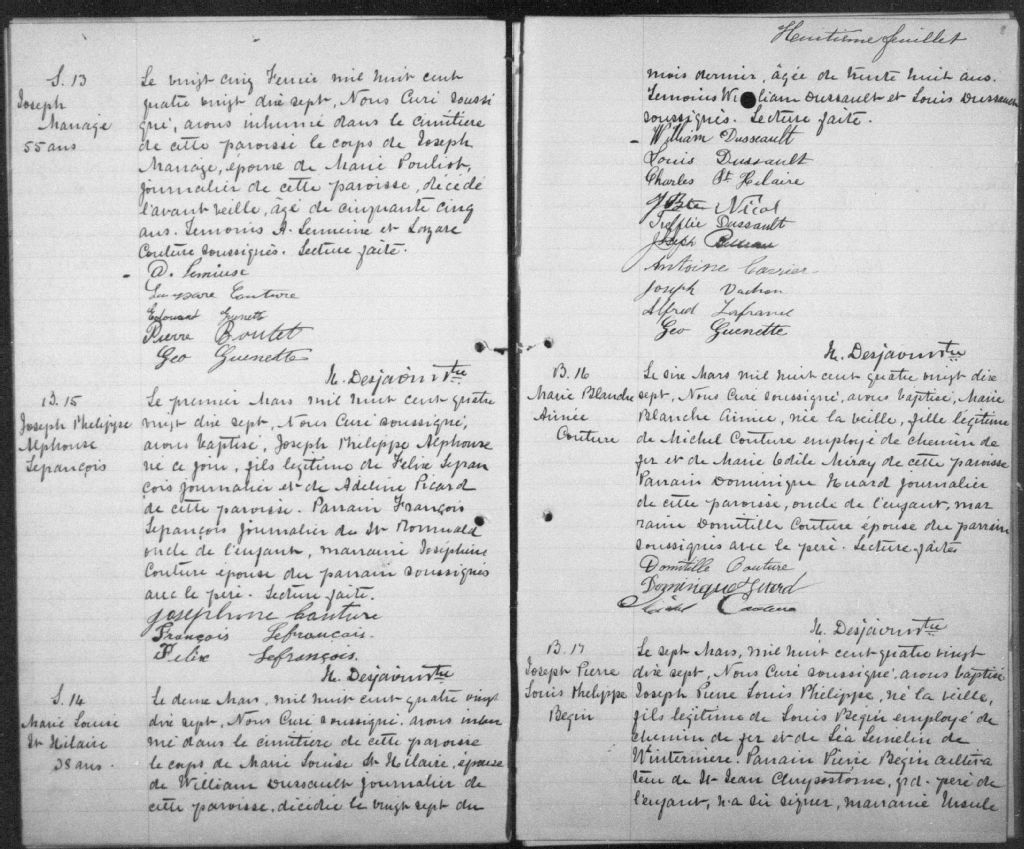 S. 13
Joseph
Mariage
55 ans
Le vingt cinq Fevrie mil huit cent
quatre vingt dix sept, Nous Curé soussi
gné, avons inhumé dans le cimitière
de cette paroisse le corps de Joseph
Mariage, époux de Marie Pouliot,
journalier de cette paroisse, décédé
l'avant veille, âgé de cinquante cinq
ans. Temoins A. Lemieux et Lazare
Couture soussignés. Lecture faite.
Couture
Edouard
Pierre Boutet
Geo Guenette
N. Desjardins Ptre
B. 15
Joseph Philippe
Alphonse
Lefrançois
Le premier Mars mil huit cent quatre
vingt dix sept, Nous Curé soussigné,
avons baptisé, Joseph Philippe Alphonse
né ce jour, fils légitime de Felix Lefran
çois journalier et de Adeline Picard
de cette paroisse. Parrain François
Lefrançois journalier de St Romuald
oncle de l'enfant, marraine Josephine
Couture épouse du parrain soussignés
avec le père. Lecture faite.
Josephine Couture
François Lefrancais.
Felix Lefrançois.
N. Desjardins Ptre
S. 14
Marie Louise
St Hilaire
38 ans.
Le deux Mars, mil huit cent quatre vingt
dix sept, Nous Curé soussigné, avons inhu
mé dans le cimitière de cette paroisse
le corps de Marie Louise St Hilaire, épouse
de William Dussault journalier de
cette paroisse, décédée le vingt sept du
Huitième feuillet
8
mois dernier, âgée de trente huit ans.
Temoins William Dussault et Louis Dussault
soussignés. Lecture faite.
William Dusseault
Louis Dussault
Charles St Hilaire
Nicol
Dussault
Joseph
Antoine Carrier
Joseph Vachon
Alfred Lafrance
Geo Guenette
N. Desjardins Ptre
B. 16
Marie Blanche
Aimée
Couture
Le six Mars mil huit cent quatre vingt dix
sept, Nous Curé soussigné, avons baptisé, Marie
Blanche Aimée, née la veille, fille légitime
de Michel Couture employé de chemin de
fer et de Marie Odile Miray de cette paroisse
Parrain Dominique Huard journalier
de cette paroisse, oncle de l'enfant, mar
raine Domitille Couture épouse du parrain
soussignés avec le père. Lecture faites
Domitille Couture
Dominique Huard
Michel Couture
N. Desjardins Ptre
B. 17
Joseph Pierre
Louis Philippe
Begin
Le sept Mars, mil huit cent quatre vingt
dix sept, Nous Curé soussigné, avons baptisé
Joseph Pierre Louis Philippe, né la veille,
fils légitime de Louis Begin employé de
chemin de fer et de Léa Lemelin de
Parrain Pierre Begin cultiva
teur de St Jean Chrysostôme, grd. père de
l'enfant, n'a su signer, marraine Ursule